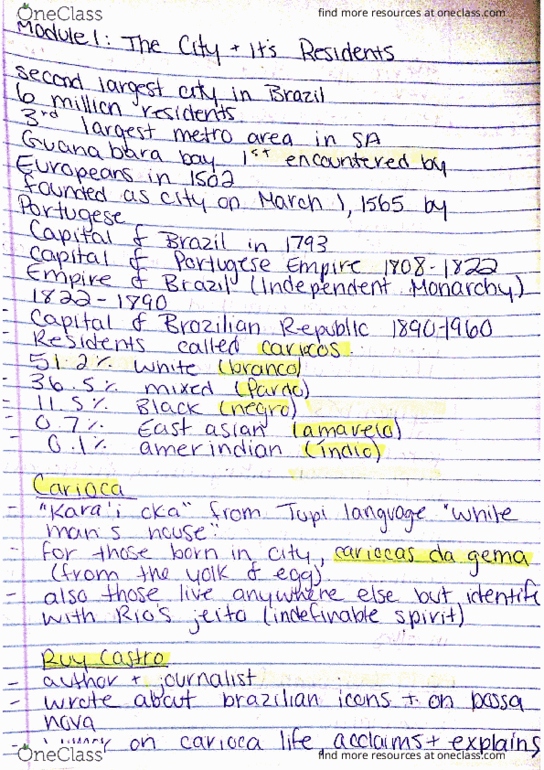 OneClass find more resources at oneclass.com
Module 1: The City + It's Residents
second largest city in Brazil
6 million residents
3rd largest metro area in SA
Guanabara bay 1st encountered by
Europeans in 1502
founded as city on March 1, 1565 by
Portugese
Capital of Brazil in 1793
Capital of Portugese Empire 1808-1822
Empire of Brazil (Independent Monarchy)
1822-1890
- Capital of Brazilian Republic 1890-1960
- Residents called cariocos
- 51.2% white (branco)
- 36.5% mixed (Pardo)
- 11.5% Black (negro)
- 0.7% East asian (amarelo)
- 0.1% amerindian (índio)
Carioca
- "Kara'i oka" from Tupi language "white
man's house"
- for those born in city, cariocas da gema
(from the yolk of egg)
- also those live anywhere else but identify
with Rio's jeito (indefinable spirit)
Ruy Castro
- author + journalist
- wrote about brazilian icons + on bossa
nova
- on carioca life, acclaims + explains
OneClass find more resources at oneclass.com